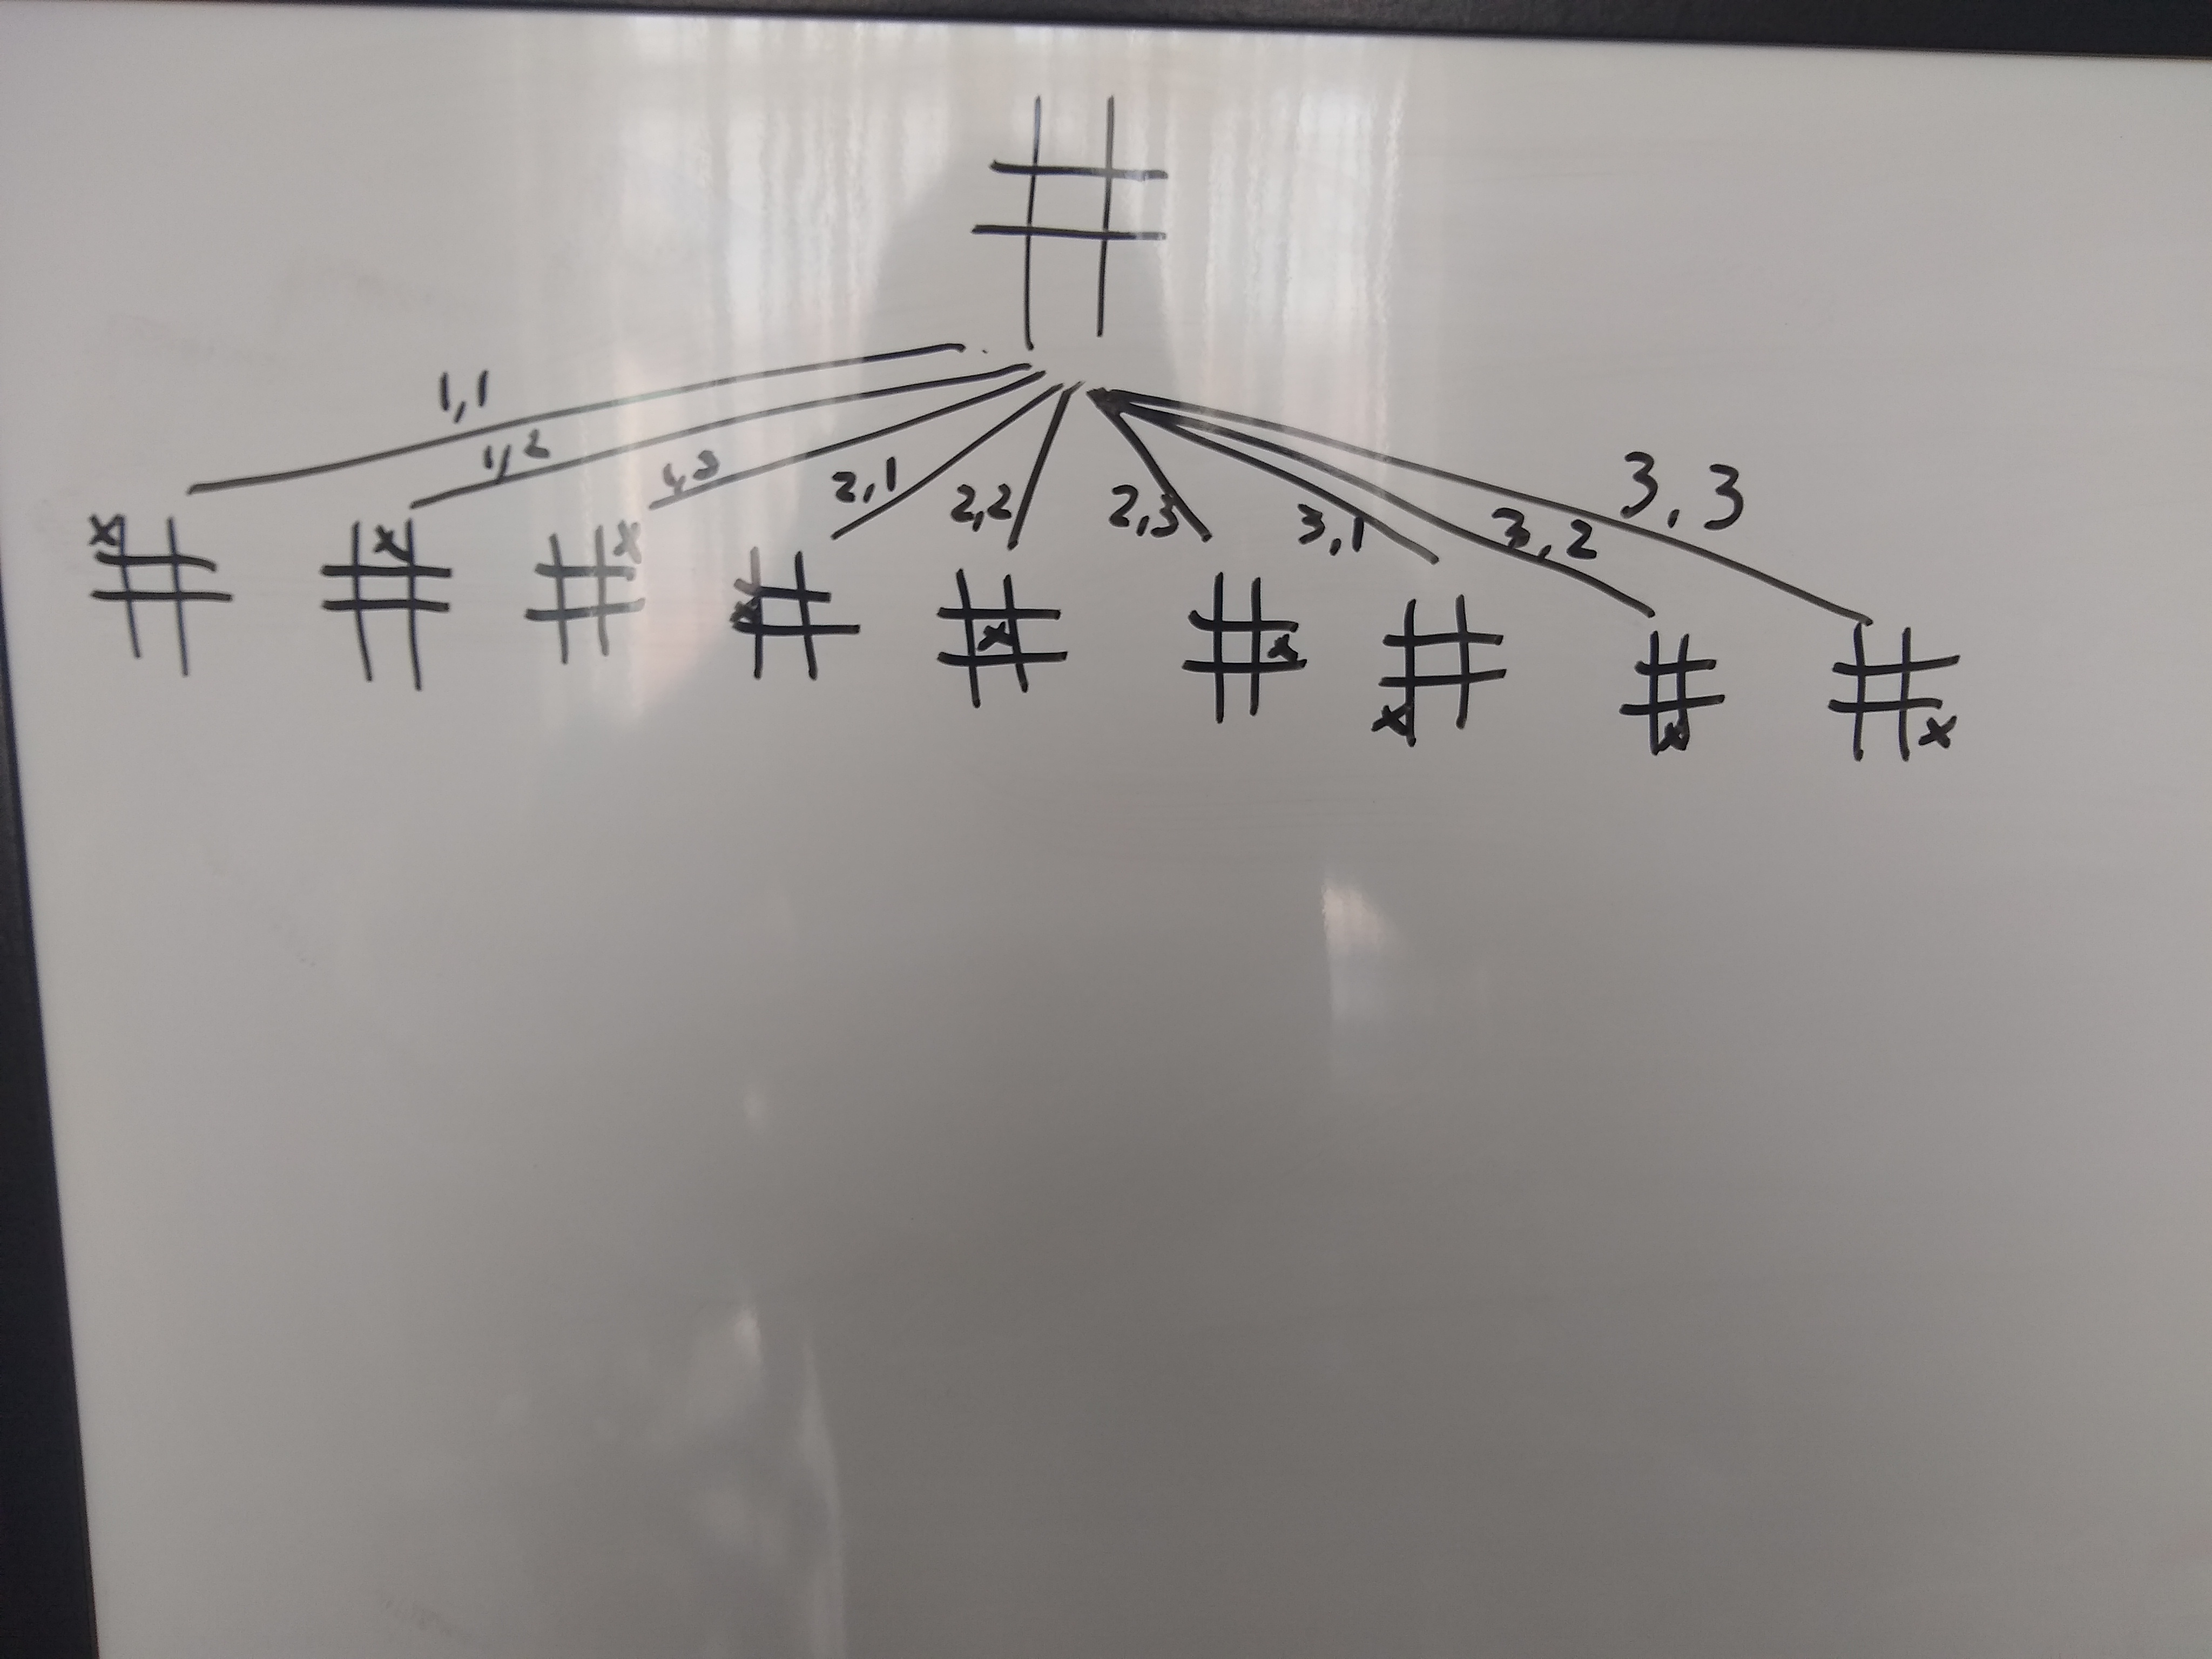 1,1
1,2
1,3
2,1
2,2
2,3
3,1
3,2
3,3
x
x
x
x
x
x
x
x
x